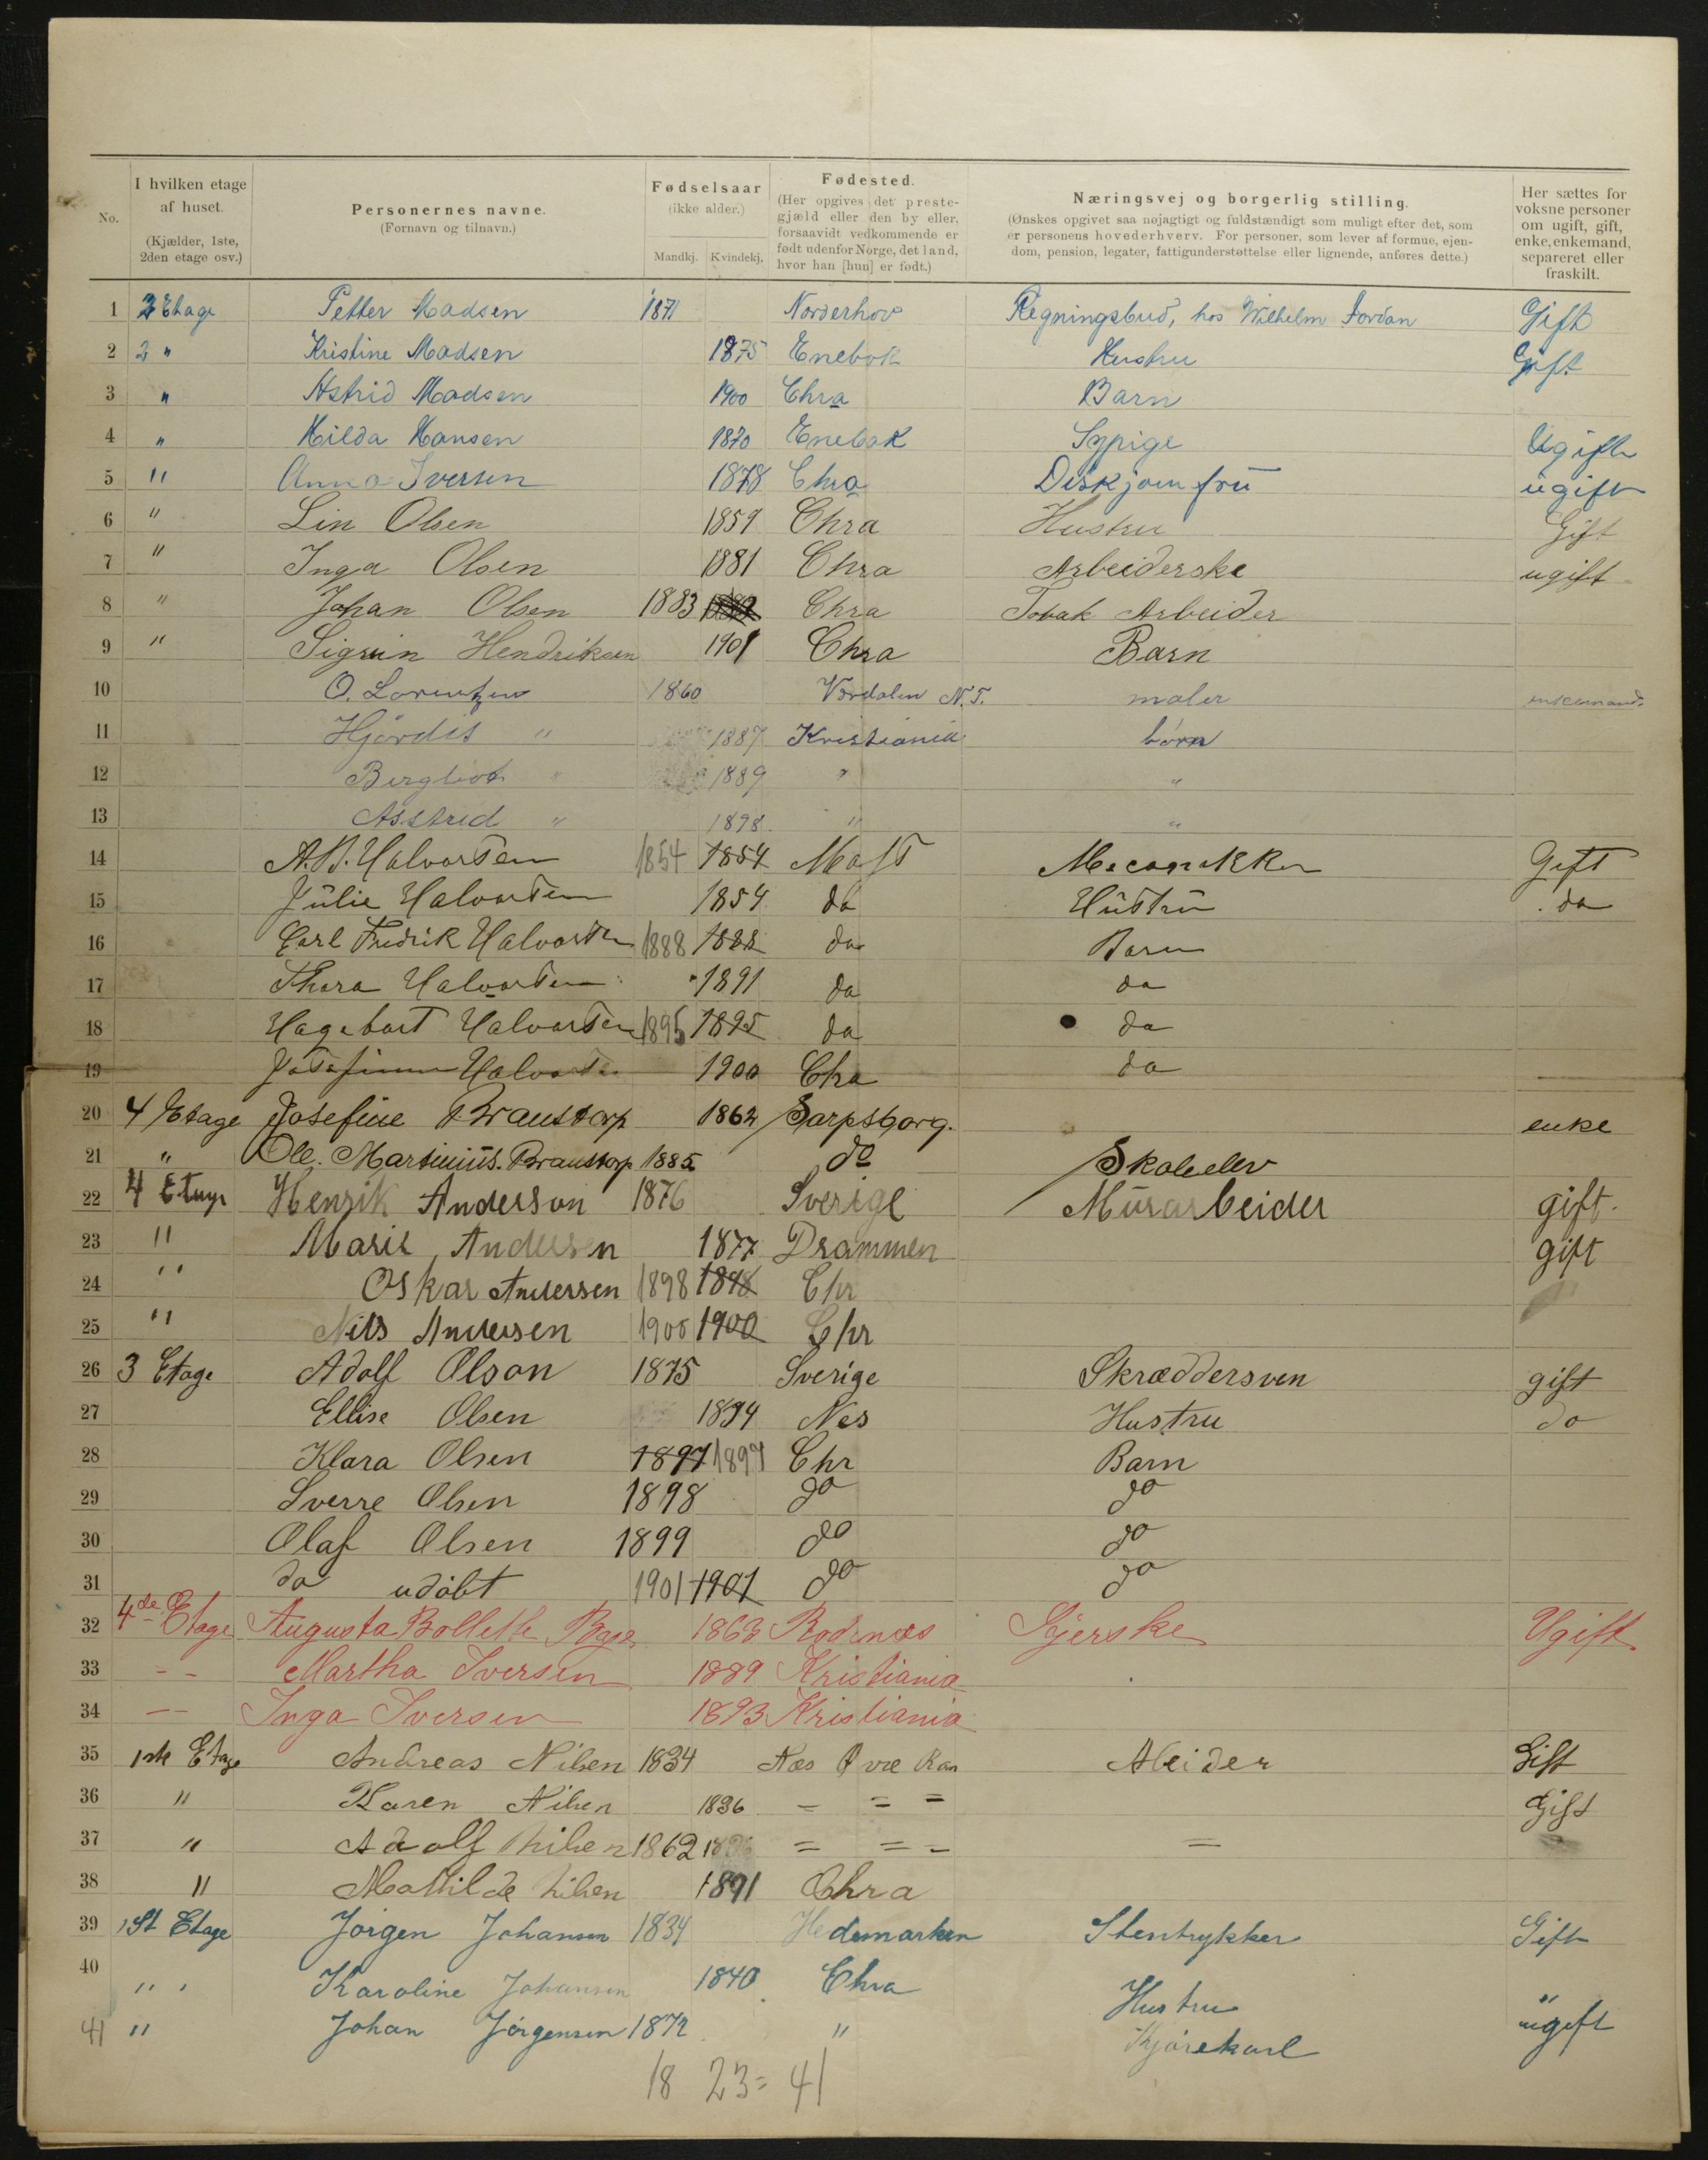 No. I hvilken etage af huset. (Kjælder, 1ste, 2den etage osv.) Personernes navne. (Fornavn og tilnavn.) Fødselsaar (ikke alder.) Mandkj. Kvindekj. Fødested. (Her opgives det prestegjæld eller den by eller, forsaavidt vedkommende er født udenfor Norge, det land, hvor han [hun] er født.) Næringsvej og borgerlig stilling. (Ønskes opgivet saa nøjagtigt og fuldstændigt som muligt efter det, som er personens hovederhverv. For personer, som lever af formue, ejendom, pension, legater, fattigunderstøttelse eller lignende, anføres dette.) Her sættes for voksne personer om ugift, gift, enke, enkemand, separeret eller fraskilt.
1 2 Etage Petter Madsen 1871 Norderhov Regningsbud, hos Wilhelm Jordan Gift
2 2 " Kristine Madsen 1875 Enebak Hustru Gift
3 " Astrid Madsen 1900 Chra Barn
4 " Hilda Hansen 1870 Enebak Sypige Ugift
5 " Anna Iversen 1878 Chra Diskjomfru ugift
6 " Lin Olsen 1859 Chra Hustru Gift
7 " Inga Olsen 1881 Chra Arbeiderske ugift
8 " Johan Olsen 1883 Chra Tobak Arbeider
9 " Sigrun Hendriksen 1901 Chra Barn
10 O. Lorentzen 1860 Værdalen N.T. maler enkemand
11 Hjørdis " 1887 Kristiania børn
12 Bergliot " 1889 " "
13 Asstrid " 1898 " "
14 A.B. Halvorsen 1854 1854 Moss Mecanikker Gift
15 Julie Halvorsen 1854 do Hustru do
16 Carl Fredrik Halvorsen 1888 1888 do Barn
17 Thora Halvorsen 1891 do do
18 Hagebart Halvorsen 1895 1895 do do
19 Josefinne Halvorsen 1900 Chra do
20 4 Etage Josefine Braustorp 1862 Sarpsborg. enke
21 " Ole. Martinius. Braustorp 1885 do Skoleelev
22 4 Etage Henrik Anderson 1876 Sverige Murarbeider gift.
23 " Marie Andersen 1877 Drammen gift
24 " Oskar Andersen 1898 1898 Chr
25 " Nils Andersen 1900 1900 Chr
26 3 Etage Adolf Olson 1875 Sverige Skræddersven gift
27 Ellise Olsen 1874 Nes Hustru do
28 Klara Olsen 1897 1897 Chr Barn
29 Sverre Olsen 1898 do do
30 Olaf Olsen 1899 do do
31 do udöbt 1901 1901 do do
32 4de Etage Augusta Bollette 1863 Rødenæs Syerske Ugift
33 - - Martha Iversen 1889 Kristiania
34 - - Inga Iversen 1893 Kristiania
35 1ste Etage Andreas Nilsen 1834 Næs Øvre Rom Abeider Gift
36 " Karen Nilsen 1836 - = = Gift
37 " Adolf Nilsen 1862 = = - =
38 " Mathilde Nilsen 1891 Chra
39 1st Etage Jörgen Johansen 1834 Hedemarken Stentrykker Gift
40 " " Karoline Johansen 1840 Chra Hustru "
41 " Johan Jörgensen 1872 " Kjörekarl ugift
18 23 = 41